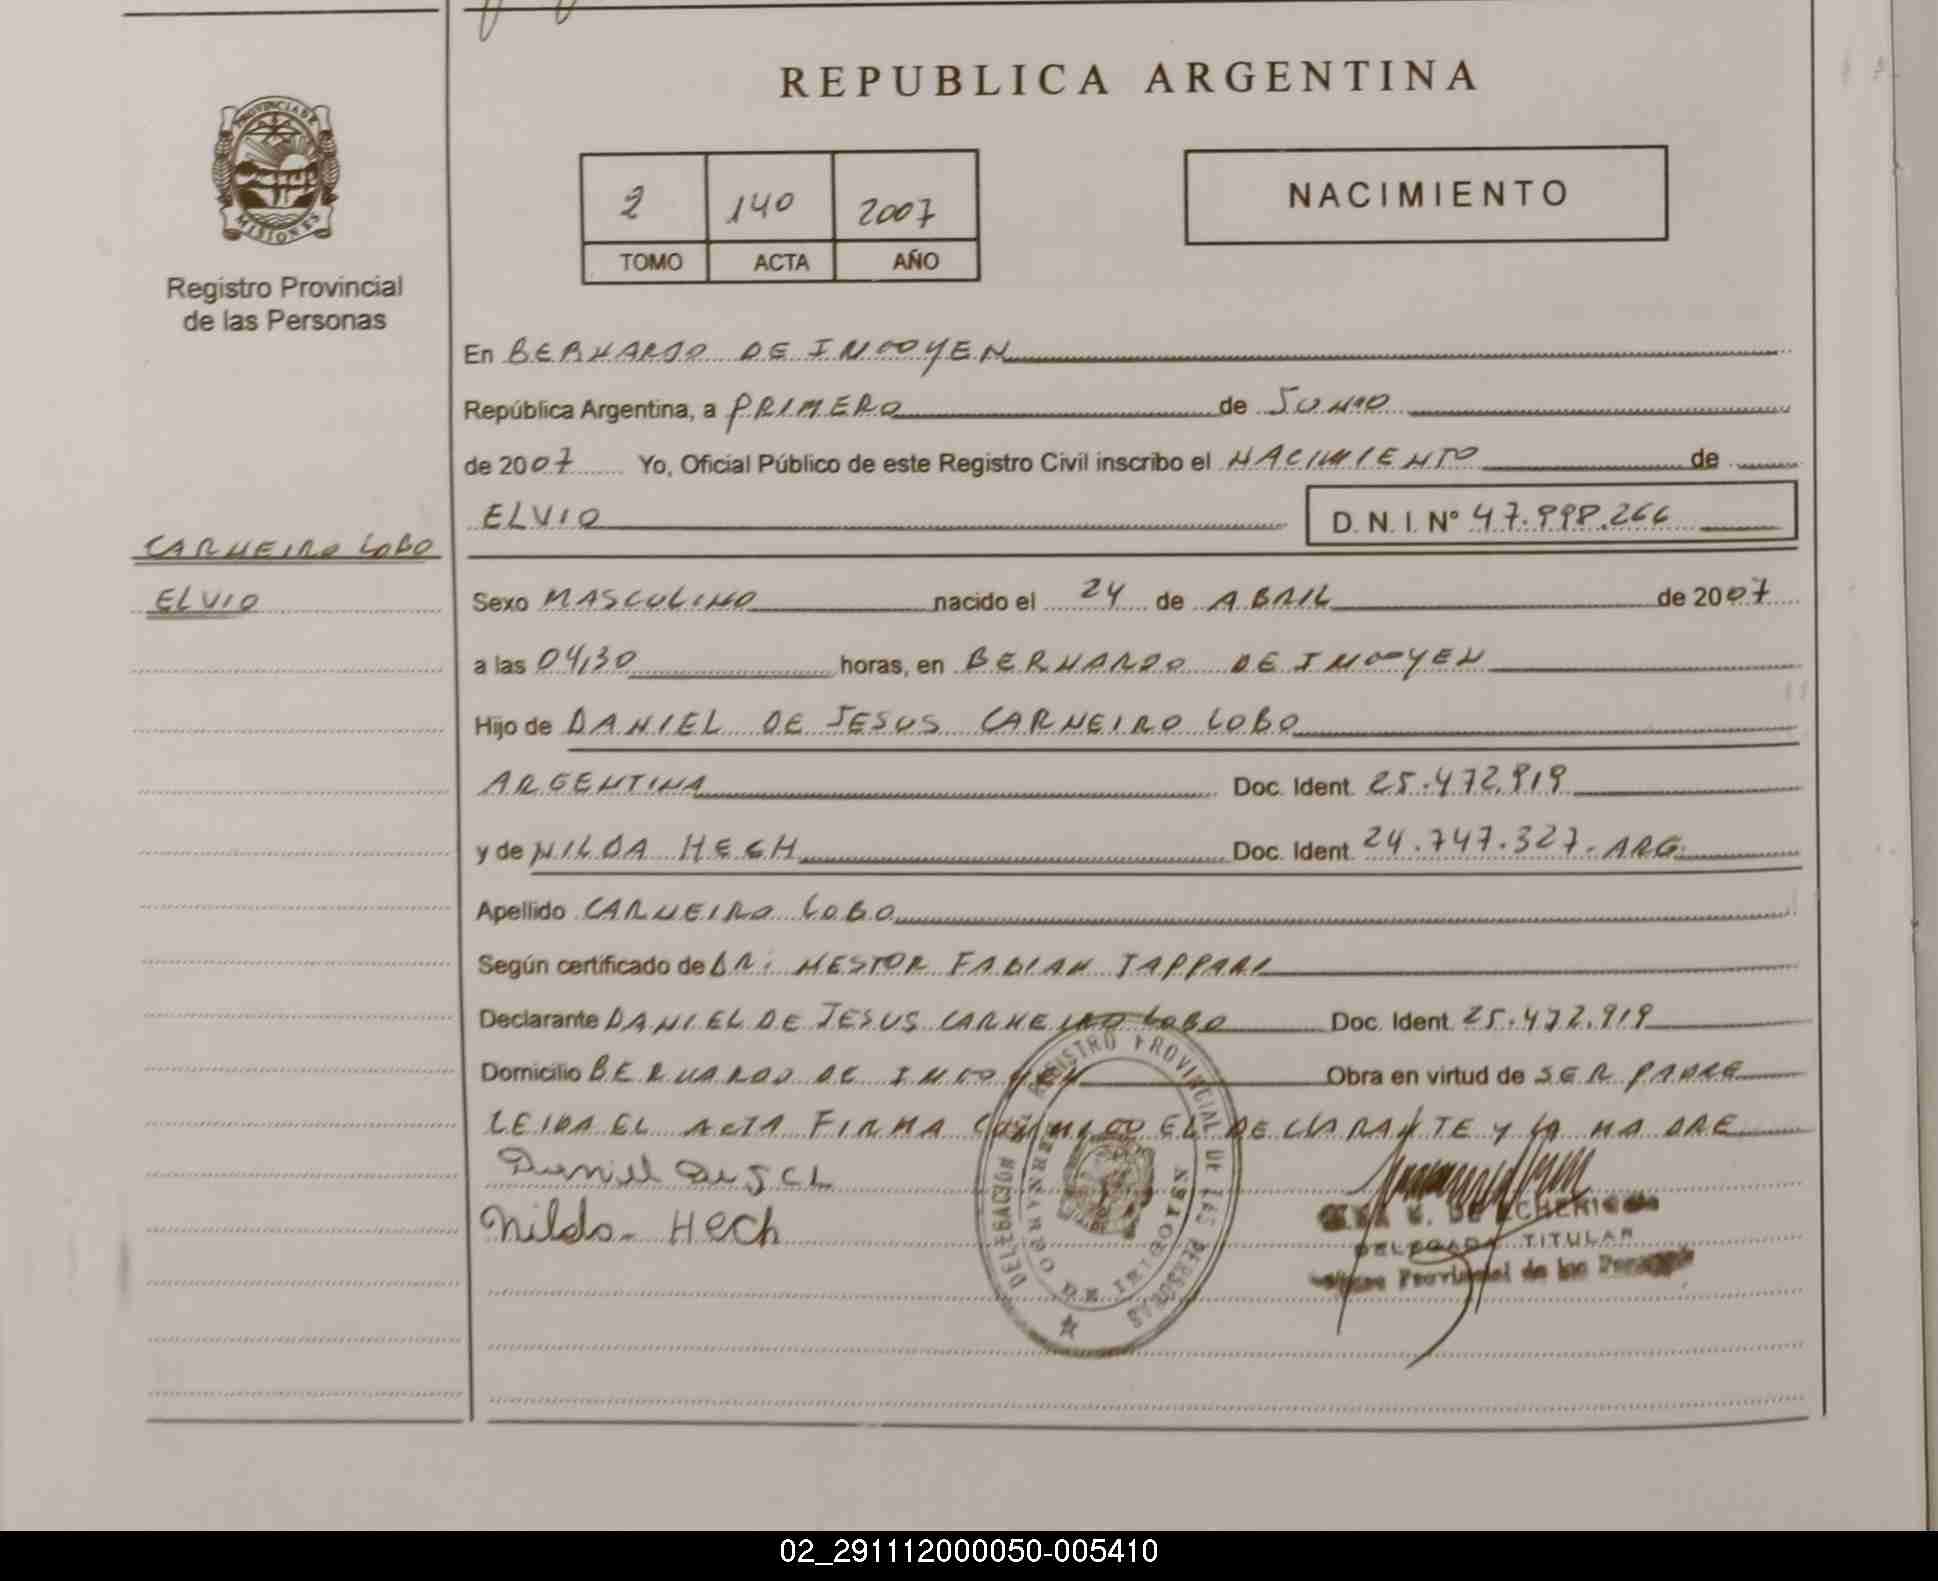 REPUBLICA ARGENTINA
PROVINCIA DE
MISIONES
Registro Provincial
de las Personas
2 140 2007
TOMO ACTA AÑO
NACIMIENTO
En BERNARDO DE IRIGOYEN
República Argentina, a PRIMERO de JUNIO
de 2007 Yo, Oficial Público de este Registro Civil inscribo el NACIMIENTO de
ELVIO D. N. I. Nº 47.998.266
CARNEIRO LOBO
ELVIO
Sexo MASCULINO nacido el 24 de ABRIL de 2007
a las 04,30 horas, en BERNARDO DE IRIGOYEN
Hijo de DANIEL DE JESUS CARNEIRO LOBO
ARGENTINA Doc. Ident. 25.472.919
y de NILDA HECH Doc. Ident. 24.747.327. ARG.
Apellido CARNEIRO LOBO
Según certificado de DR: NESTOR FABIAN TAPPARI
Declarante DANIEL DE JESUS CARNEIRO LOBO Doc. Ident. 25.472.919
Domicilio BERNARDO DE IRIGOYEN Obra en virtud de SER PADRE
LEIDA EL ACTA FIRMA CONMIGO EL DECLARANTE Y LA MADRE
Daniel De J C L
Nilda Hech
DELEGACIÓN REGISTRO PROVINCIAL DE LAS PERSONAS
BERNARDO DE IRIGOYEN
DELEGADA TITULAR
Provincial de las
02_291112000050-005410